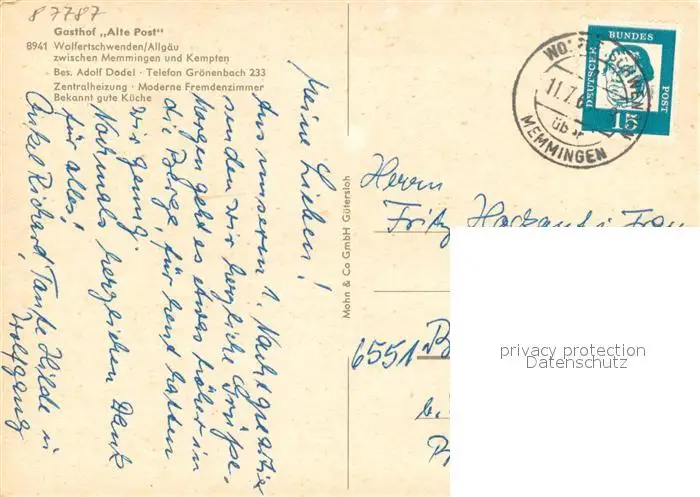 87787
Gasthof „Alte Post"
8941 Wolfertschwenden/Allgäu
zwischen Memmingen und Kempten
Bes. Adolf Dodel · Telefon Grönenbach 233
Zentralheizung · Moderne Fremdenzimmer
Bekannt gute Küche
Meine Lieben!
Aus unserem 1. Nachtquartier
senden wir herzliche Grüße.
Morgen geht es etwas höher in
die Berge, für heut hatten
wir genug.
Nochmals herzlichen Dank
für alles!
Onkel Richard, Tante Hilde u
Wolfgang
Mohn & Co GmbH Gütersloh
über
MEMMINGEN
11.7.6
DEUTSCHE BUNDES POST
15
Herrn
Fritz
6551
privacy protection
Datenschutz